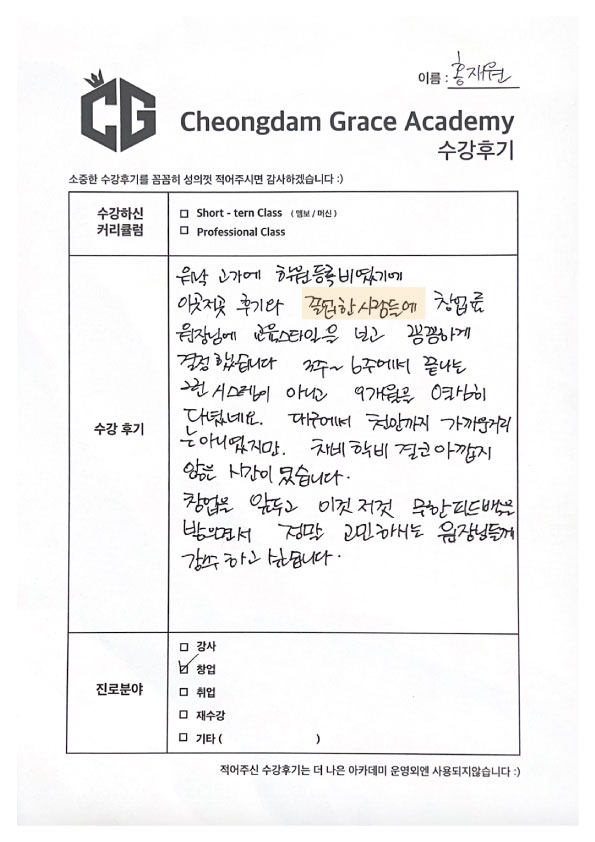 이름 : 홍재원
CG
Cheongdam Grace Academy
수강후기
소중한 수강후기를 꼼꼼히 성의껏 적어주시면 감사하겠습니다 :)
수강하신
커리큘럼
□ Short - tern Class ( 엠보 / 머신 )
□ Professional Class
수강 후기
워낙 고가에 학원등록비였기에
이곳저곳 후기와 졸업한 사람들에 창업률
원장님에 교육스타일을 보고 꼼꼼하게
결정했습니다 3주~ 6주에서 끝나는
그런 시스템이 아니고 9개월을 열심히
다녔네요. 대구에서 천안까지 가까운거리
는아니였지만. 차비 학비 결코 아깝지
않은 시간이 였습니다.
창업을 앞두고 이것 저것 무한피드백을
받으면서 정말 고민하시는 원장님들께
감사 하고 싶습니다.
진로분야
□ 강사
☑ 창업
□ 취업
□ 재수강
□ 기타 ( )
적어주신 수강후기는 더 나은 아카데미 운영외엔 사용되지않습니다 :)